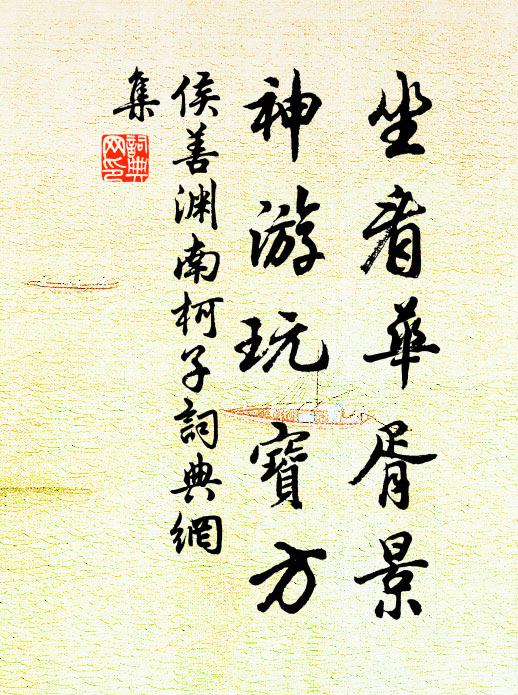 坐看華胥景
神游玩寶方
侯善淵南柯子詞典網
集
詞典
网印